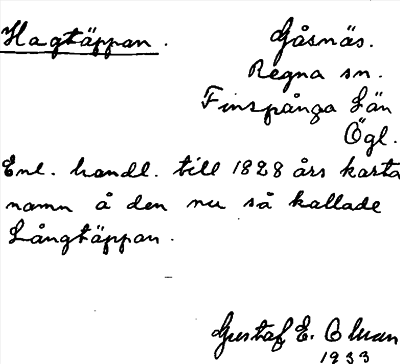 Hagtäppan. Gåsnäs.
Regna sn.
Finspånga Län
Ögl.
Enl. handl. till 1828 års karta
namn å den nu så kallade
Långtäppan.
Gustaf E. Olman
1933